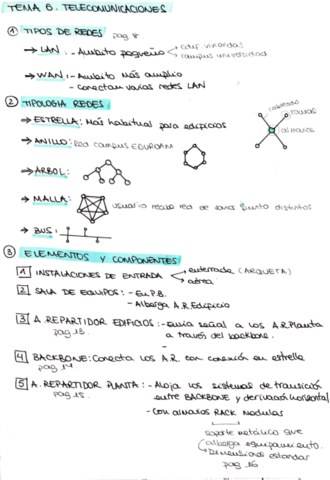 TEMA 6. TELECOMUNICACIONES
① TIPOS DE REDES pag 8
→ LAN: - Ámbito pequeño
edif viviendas
campus universidad
→ WAN: - Ámbito más amplio
- Conectan varias redes LAN
② TIPOLOGIA REDES
→ ESTRELLA: Más habitual para edificios
cableado
ramas
armarios
→ ANILLO: Red campus EDUROAM
→ ARBOL:
→ MALLA: usuario recibe red de varios puntos distintos
→ BUS:
③ ELEMENTOS Y COMPONENTES
1 INSTALACIONES DE ENTRADA
enterrada (ARQUETA)
aérea
2 SALA DE EQUIPOS: - En P.B.
- Alberga A.R. Edificio
3 A. REPARTIDOR EDIFICIOS: - envía señal a los A.R. Planta
pag 13 a través del backbone.
4 BACKBONE: Conecta los A.R. con conexión en estrella
pag 14
5 A. REPARTIDOR PLANTA: - Aloja los sistemas de transición
pag 15. entre BACKBONE y derivación horizontal
- Con armarios RACK modulares
soporte metálico que
alberga equipamiento.
Dimensiones estandar
pag 16